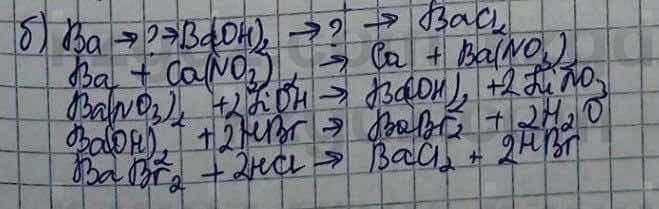 б) Ba → ? → Ba(OH)₂ → ? → BaCl₂
Ba + Ca(NO₃)₂ → Ca + Ba(NO₃)₂
Ba(NO₃)₂ + 2LiOH → Ba(OH)₂ + 2LiNO₃
Ba(OH)₂ + 2HBr → BaBr₂ + 2H₂O
BaBr₂ + 2HCl → BaCl₂ + 2HBr